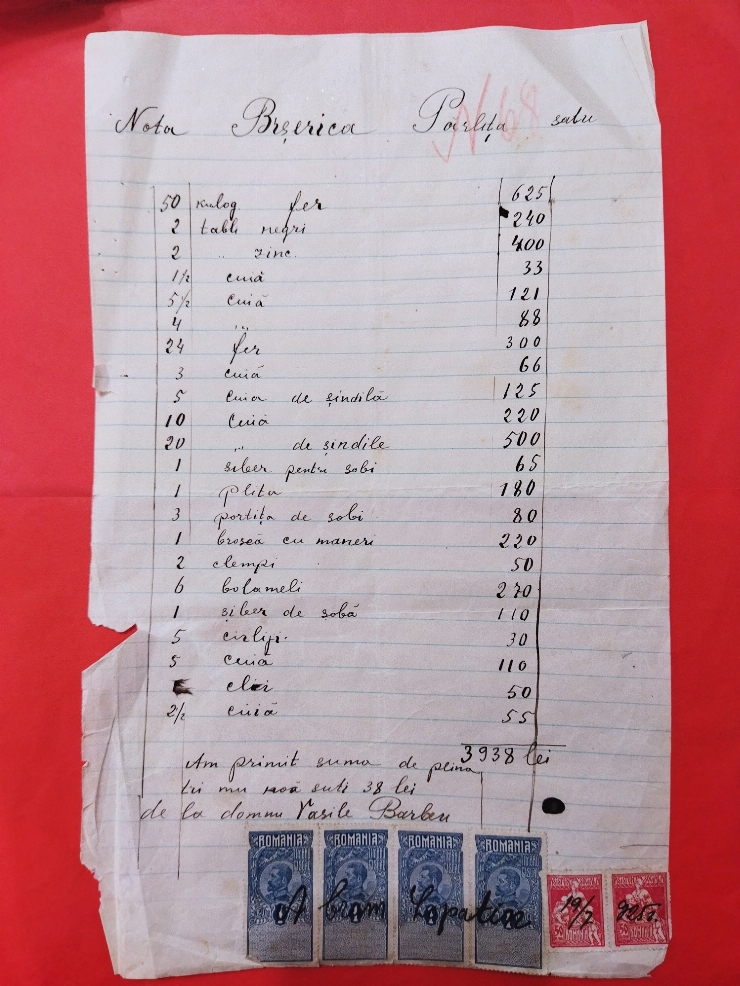 Nota Biserica Parlița satu
N 68
50 kulog. fer 625
2 tabli negri 240
2 „ zinc. 400
1 1/2 cuiă 33
5 1/2 cuiă 121
4 „ 88
24 fer 300
3 cuiă 66
5 cuia de șindilă 125
10 cuiă 220
20 „ de șindile 500
1 siber pentru sobi 65
1 plita 180
3 portița de sobi 80
1 broscă cu maneri 220
2 clempi 50
6 bolameli 270
1 șiber de sobă 110
5 30
5 cuiă 110
clei 50
2/2 cuiă 55
3938 lei
Am primit suma de plina
tri mii noă suti 38 lei
de la domnu Vasile Barbu
ROMANIA ROMANIA ROMANIA ROMANIA
Abram Lopatice 19/7 925